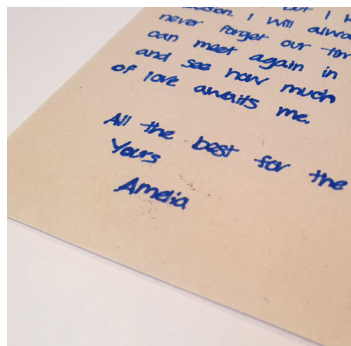 but I
I will alwa
never forget our
can meet again in
and see how much
of love awaits me.
All the best for the
Yours
Amelia